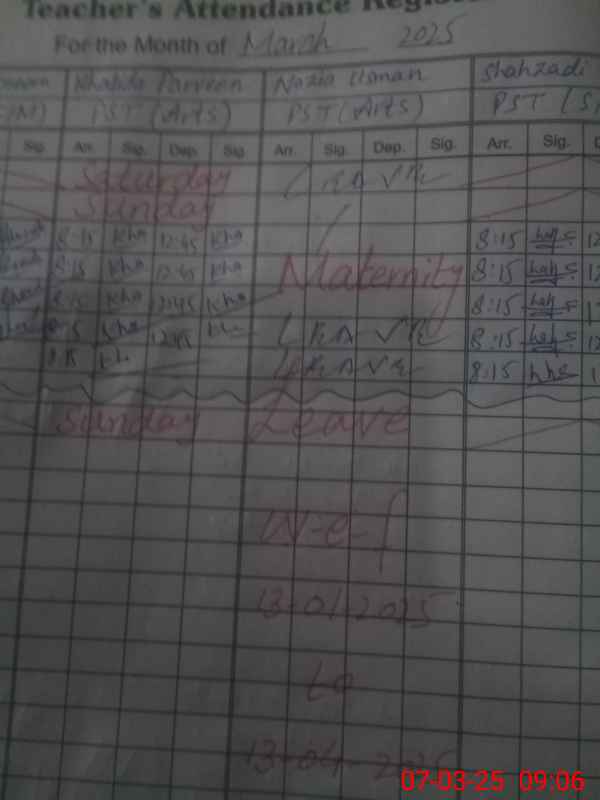 Teacher's Attendance Regis
For the Month of March 2025
Khalida Parveen Nazia Usman Shahzadi
PST (Arts) PST (Arts) PST (S
Sig. Arr. Sig. Dep. Sig. Arr. Sig. Dep. Sig. Arr. Sig. D
Saturday LEAVE
Sunday
8:15 Kha 12:45 Kha 8:15 12
8:15 Kha 12:45 Kha Maternity 8:15 12
8:15 Kha 12:45 Kha 8:15 1
8:15 Kha 12:45 LEAVE 8:15 12
8:15 LEAVE 8:15 1
Sunday Leave
W-e-f
13-01-2025
to
13-04-2025
07-03-25 09:06